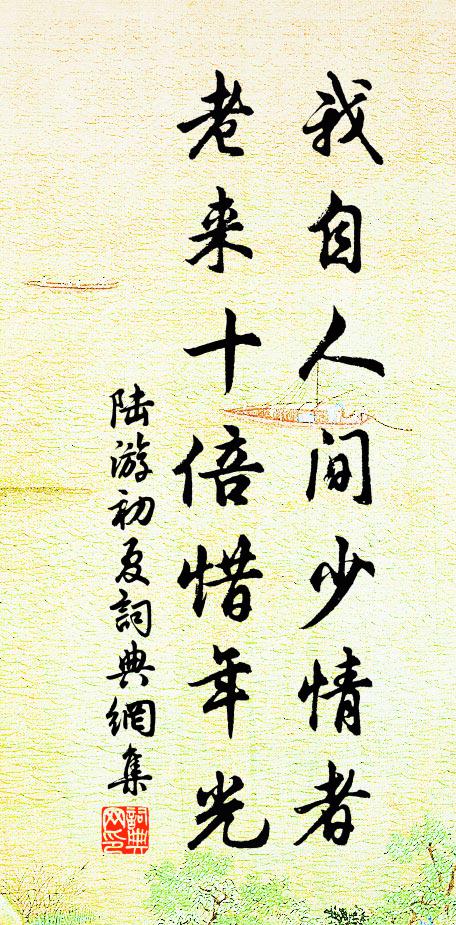 我自人间少情者
老来十倍惜年光
陆游初夏詞典網集
詞典网印